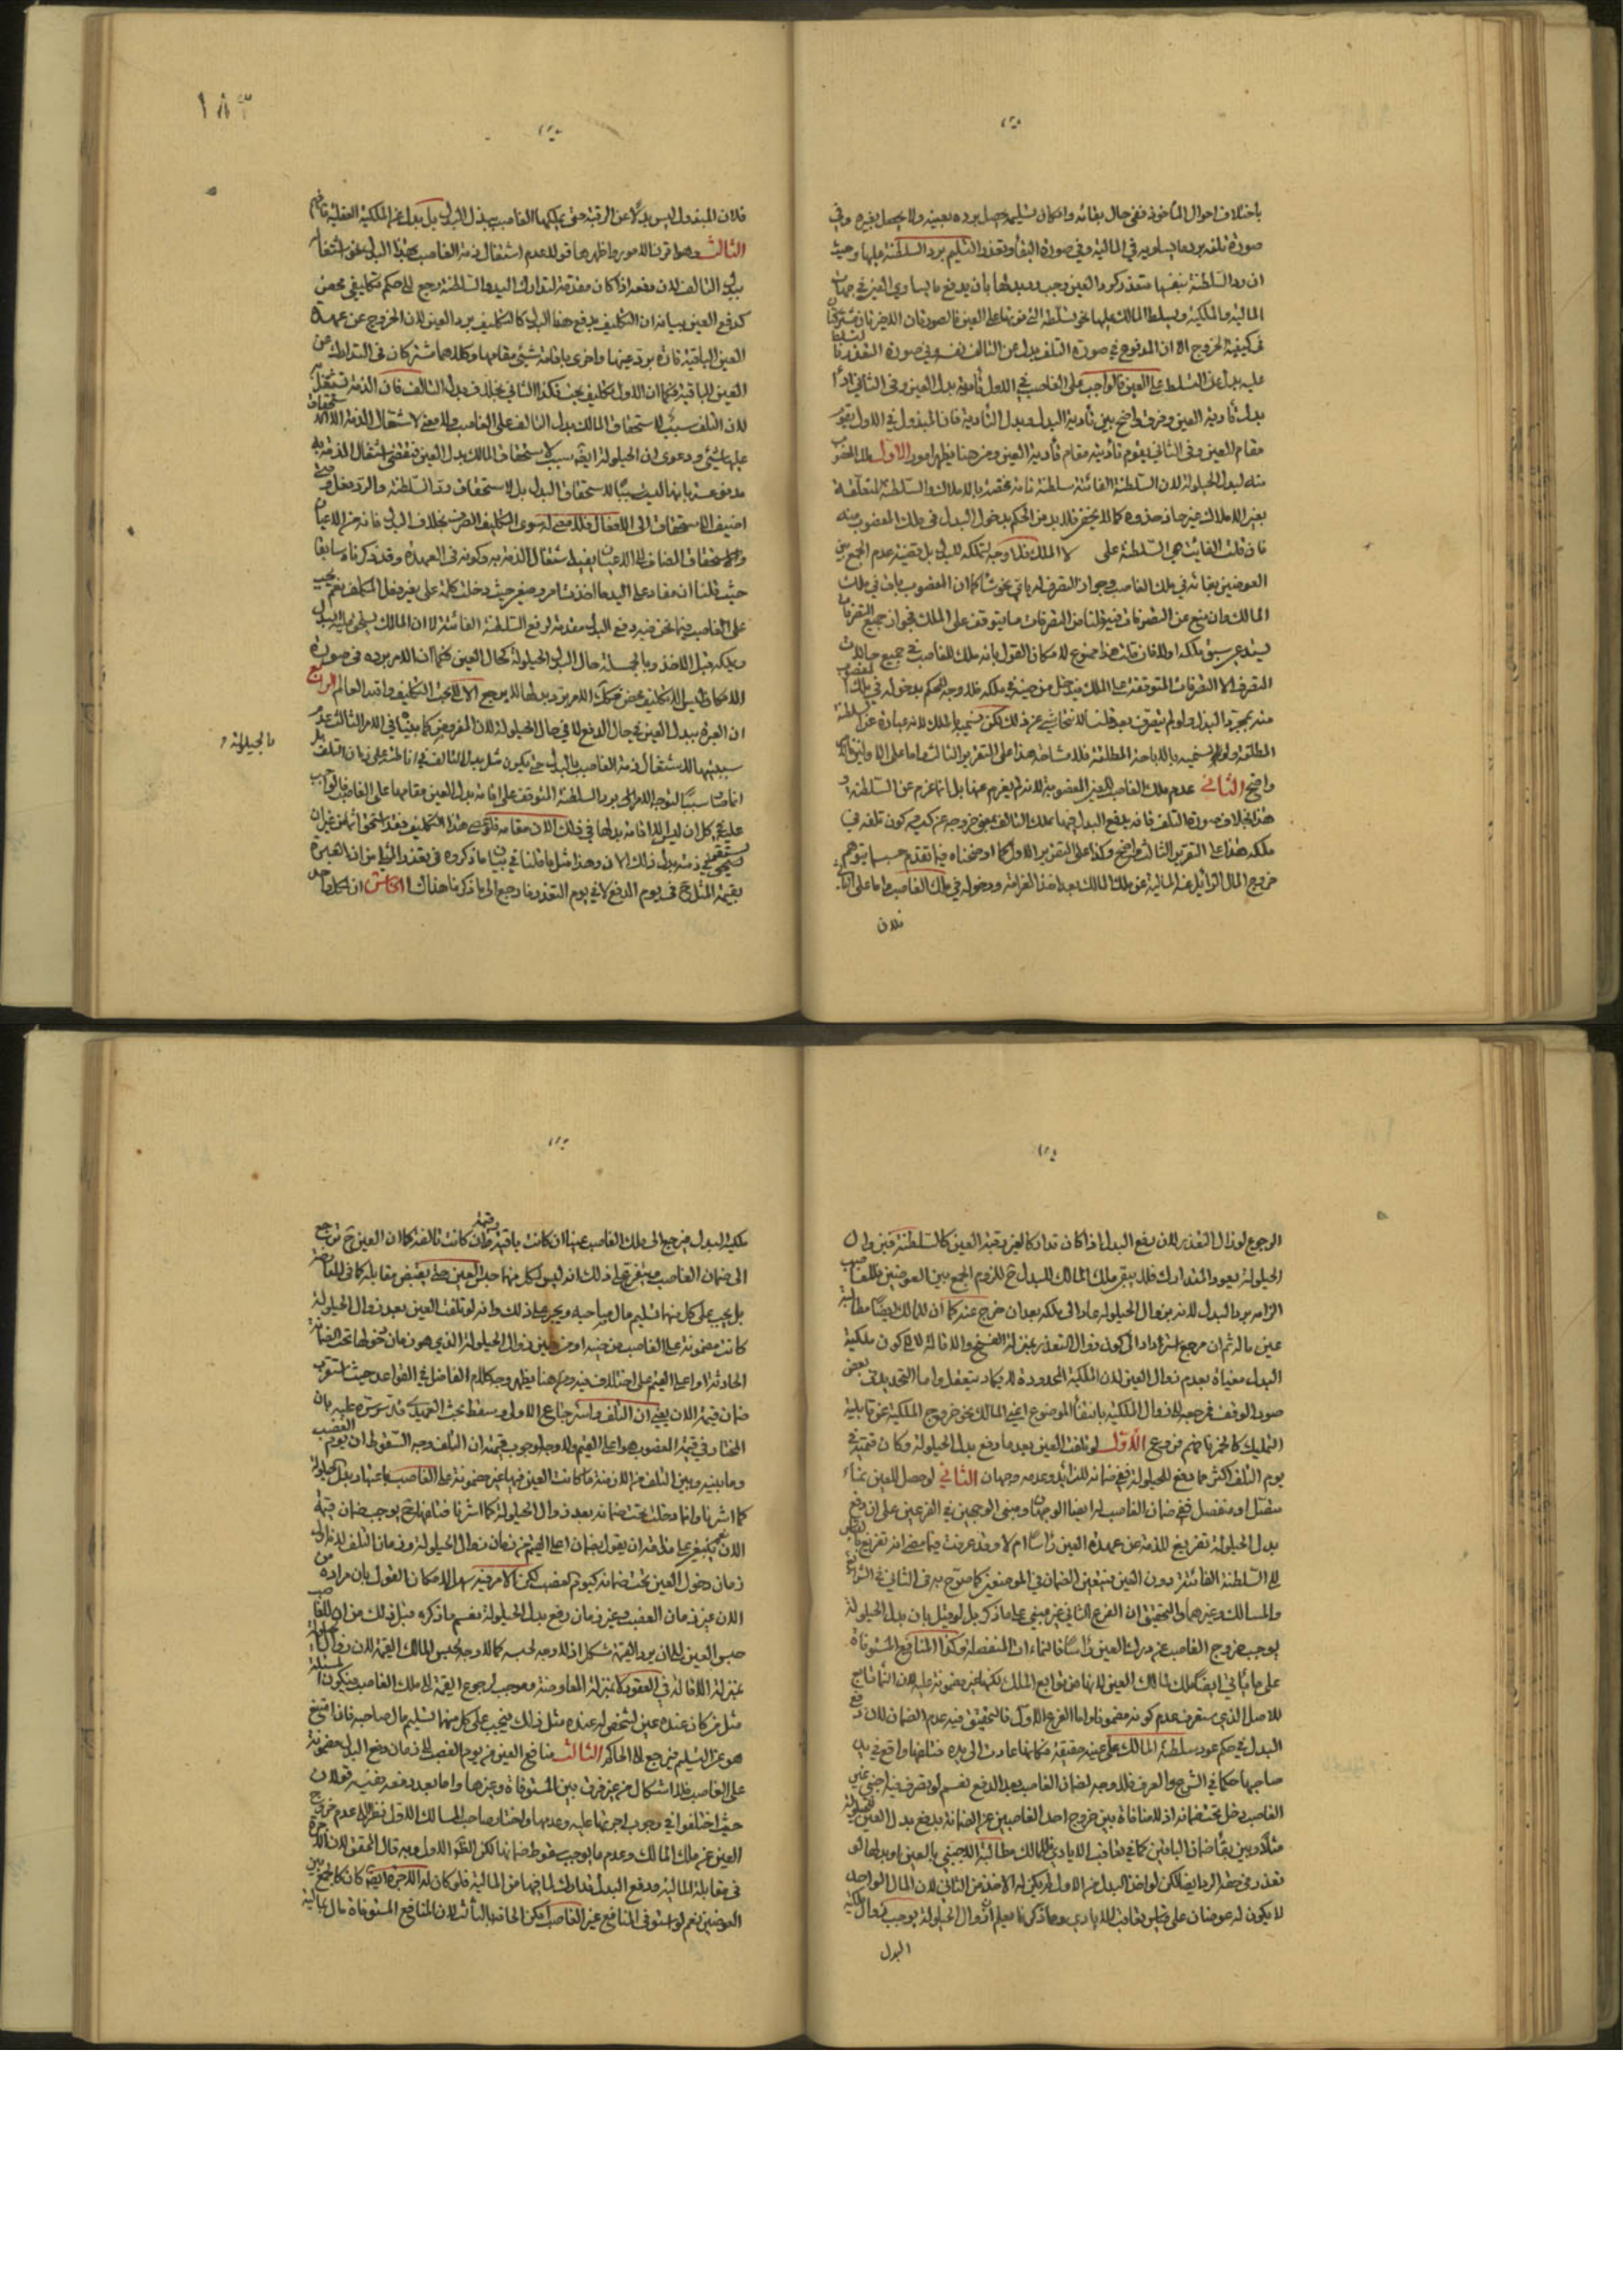 باختلاف احوال المأخوذ ففي حال بقائه وامكان تسليمه يحصل برده بعينه ولا يحصل بغيره وفي
صورة تلفه برد ما يساويه في المالية وفي صورة البقاء وتعذر التسليم برد السلطنة عليها وحيث
ان رد السلطنة بنفسها متعذر كرد العين وجب رد بدلها بان يدفع ما يساوي العين في جهات
المالية والملكية ويسلط المالك عليها نحو سلطنة التي فوتها على العين فالصورتان الاخيرتان مشتركتان
في كيفية الخروج الا ان المدفوع في صورة التلف بدل عن التالف نفسه وفي صورة التعذر
عليه بدل عن التسلط على العين فالواجب على الغاصب في الاول تأدية بدل العين وفي الثاني
بدل تأدية العين وفرق واضح بين تأدية البدل وبدل التأدية فان المبذول في الاول يقوم
مقام العين وفي الثاني يقوم تأديته مقام تأدية العين ومن هنا يظهر امور الاول ملك المغصوب
منه لبدل الحيلولة لان السلطنة الفائتة سلطنة تامة مختصة بالاملاك والسلطنة المتعلقة
بغير الاملاك غير حاذ حذوه كما لا يخفى فلا بد من الحكم بدخول البدل في ملك المغصوب منه
فان قلت الفائت هي السلطنة على لا الملك فلا وجه لتملكه للبدل بل قضية عدم الجمع بين
العوضين بقائه في ملك الغاصب وجواز التصرف له باي نحو شاء كما ان المغصوب باق في ملك
المالك وان منع عن التصرفات فيه قلنا من التصرفات ما يتوقف على الملك فجواز جميع التصرفات
يستدعي سبق ملكه اولا فان قلت هذا ممنوع لامكان القول بانه ملك للغاصب في جميع حالات
التصرف الا التصرفات المتوقفة على الملك فيدخل من حينه في ملكه فلا وجه للحكم بدخوله في ملك المغصوب
منه بمجرد البذل ولو لم يتصرف بعد قلنا لا نتحاشى عن ذلك لكن نسميه بالملك لانه عبارة عن السلطنة
المطلقة ولو لم تسميه بالاباحة المطلقة فلا مشاحة هذا على التقرير الثالث واما على الاولين فالامر
واضح الثاني عدم ملك الغاصب للعين المغصوبة لانه لم يغرم عنها بل انما غرم عن السلطنة
هذا بخلاف صورة التلف فانه بدفع البدل فيها يملك التالف بمعنى خروجه عن كيسه كون تلفه في
ملكه هذا على التقرير الثالث واضح وكذا على التقرير الاول كما اوضحناه فيما تقدم حسبما يتوهم
خروج المال الزائل عنه المالية عن ملك المالك بعد اخذ الغرامة ودخوله في ملك الغاصب واما على الثاني
فلان
١٨٣
فلان المبذول ليس بدلا عن الرقبة حتى يملكها الغاصب ببذل البدل بل بدل عن الملكية الفعلية فافهم
الثالث وهو اقرب الامور واظهرها قولا عدم اشتغال ذمة الغاصب بهذا البدل نحو اشتغالها
ببدل التالف لان دفعه اذا كان مقدمة لتدارك اليد والسلطنة رجع الى حكم تكليفي محض
كدفع العين بيانه ان التكليف بدفع هذا البدل كالتكليف برد العين لان الخروج عن عهدة
العين الباقية تارة برد عينها واخرى باقامة شيء مقامها وكلاهما مشتركان في التدارك عن
العين الباقية فكما ان الاول تكليف بحت فكذا الثاني بخلاف بدل التالف فان الذمة تشتغل به
لان التلف سبب لاستحقاق المالك بدل التالف على الغاصب ولا معنى لاشتغال الذمة الا استحقاق
عليها شيء ودعوى ان الحيلولة ايضا سبب لاستحقاق المالك بدل العين فيقتضي اشتغال الذمة به
مدفوعة بانها ليست سببا لاستحقاق البدل بل لاستحقاق رد السلطنة والرد فعل ومتى
اضيف الاستحقاق الى الافعال فلا معنى له سوى التكليف الصرف بخلاف البدل فانه من الاعيان
والاستحقاق المضاف الى الاعيان يفيد اشتغال الذمة به وكونه في العهدة وقد ذكرناه سابقا
حيث قلنا ان مفاد على اليد ما اخذت امر وضعي حيث دخلت كلمة على بغير فعل المكلف نعم يجب
على الغاصب فيما نحن فيه دفع البدل مقدمة لرفع السلطنة الفائتة لا ان المالك يستحق عليه البدل
ويملكه قبل الاخذ وبالجملة حال البدل الحيلولة كحال العين فكما ان الامر برده في صورة
الامكان ليس الا تكليف محض فكذلك الامر برد بدلها لا يرجع الا الى بحت التكليف والله العالم الرابع
ان العبرة ببدل العين في حال الدفع لا في حال الحيلولة لان المفروض كما بيناه في الامر الثالث عدم
سببيتها لاشتغال ذمة الغاصب بالبدل حتى يكون مثل بدل التالف في اناطته على زمان التلف بل
انما صارت سببا لتوجه الامر الى برد السلطنة المتوقف على اقامة بدل العين مقامها على الغاصب فالواجب
عليه في كل ان لديه الاقامة بدلها في ذلك الان مقامه فمتى مضى هذا التكليف فقد استحق اثما من غير ان
يستحق في ذمته بدل ذلك الان وهذا مثل ما قلنا في بيان ما ذكروه في تعذر المثل من ان العبرة
بقيمة المثل في يوم الدفع لا في يوم التعذر فارجع الى ما ذكرنا هناك الخامس ان
بالحيلولة
الرجوع لو زال التعذر لان دفع البدل اذا كان تداركا لغير رقبة العين كالسلطنة فحين زوال
الحيلولة يعود المتدارك فلا يبقى ملك المالك للبدل ح للزوم الجمع بين العوضين فللغاصب
الزامه برد البدل لانه بزوال الحيلولة عاد الى ملكه بعد ان خرج عنه كما ان للمالك ايضا مطالبة
عين ماله ثم ان مرجع الى كون زوال التعذر بمنزلة الفسخ والاقالة لا الى كون ملكية
البدل مغياة بعدم زوال العين لان الملكية المحدودة لا يكاد يتعقل واما التحديد في بعض
صور الوقف فمرجعه الى زوال الملكية بانتفاء الموضوع اعني المالك نحو خروج الملكية عن قابلية
التمليك كالخمر فافهم فروع الاول لو تلفت العين بعد ما دفع بدل الحيلولة وكان قيمته في
يوم التلف اكثر مما دفع للحيلولة ففي ضمانه للزايد وعدمه وجهان الثاني لو حصل للعين نماء
متصل او منفصل ففي ضمان الغاصب له ايضا الوجهان ومبنى الوجهين في الفرعين على ان دفع
بدل الحيلولة تفريغ للذمة عن عهدة العين رأسا ام لا وقد عرفت فيما مضى انه تفريغ بالقياس
الى السلطنة الفائتة دون العين فيتعين الضمان في الموضعين كما صرح به في الثاني في الشرائع
والمسالك وغيرهما والتحقيق ان الفرع الثاني غير مبني على ما ذكر بل لو قيل بان بدل الحيلولة
يوجب خروج الغاصب عن درك العين رأسا فالنماءات المنفصلة وكذا المنافع المستوفاة
على ما يأتي ايضا ملك لمالك العين لانها من توابع الملك لكنها غير مضمونة عليه لان النماء تابع
للاصل الذي ستعرف عدم كونه مضمونا واما الفرع الاول فالتحقيق فيه عدم الضمان لان دفع
البدل في حكم عود سلطنة المالك على عينه حقيقة فكانها عادت الى يده فتلفها واقع في يد
صاحبها حكما في الشرع والعرف فلا وجه لضمان الغاصب بعد الدفع نعم لو تصرف فيه اجنبي غير
الغاصب دخل تحت ضمانه اذ لا منافاة بين خروج احد الغاصبين عن الضمانة بدفع بدل العين للحيلولة
مثلا وبين بقاء ضمان الباقين كما في تعاقب الايادي فللمالك مطالبة الاجنبي بالعين او بدلها لو
تعذر في حقه الرد ايضا لكن لو اخذ البدل من الاول لم يكن له الاخذ من الثاني لان المال الواحد
لا يكون له عوضان على قياس تعاقب الايادي ومما ذكرنا يعلم ان زوال الحيلولة يوجب زوال ملكية
البدل
ملكية البدل فيرجع الى ملك الغاصب عينا ان كانت باقية وقيمة ان كانت تالفة كما ان العين ح ترجع
الى ضمان الغاصب ويتفرع على ذلك انه ليس لكل منهما حبس العين حتى يقبض مقابله كما في المعاوضة
بل يجب على كل منهما تسليم مال صاحبه ويتفرع على ذلك وانه لو تلفت العين بعد زوال الحيلولة
كانت مضمونة على الغاصب من حينه او من حين زوال الحيلولة الذي هو زمان دخولها تحت الضمانة
الحادثة او اعلى القيم على اختلاف فيه ومن هنا يظهر وجه كلام الفاضل في القواعد حيث استقرب
ضمان قيمة الان يعني ان التلف واسترجاع الاول وسقط بحث العميدي قدس سره عليه بان
المختار في قيمة المغصوب هو اعلى القيم ولا وجه لوجوب قيمته ان التلف وجه السقوط ان يوم الغصب
وما بينه وبين التلف من الازمنة ما كانت العين فيها غير مضمونة على الغاصب باعتبار بدل الحيلولة
كما اشرنا وانما دخلت تحت ضمانه بعد زوال الحيلولة كما اشرنا فتلفها ح يوجب ضمان قيمة
الان نعم ينبغي على مذاقه ان يقول بضمان اعلى القيم من زمان زوال الحيلولة وزمان التلف لانه الى
زمان دخول العين تحت ضمانه كيوم الغصب لكن الامر فيه سهل لامكان القول بان مراده من
الان غير زمان الغصب وغير زمان دفع بدل الحيلولة نعم ما ذكره قبل ذلك من ان للغاصب
حبس العين الى ان يرد القيمة مشكل اذ لا وجه لحبسه كما لا وجه لحبس المالك القيمة لان زوال الحيلولة
بمنزلة الاقالة في العقود لا بمنزلة المعاوضة وموجب لرجوع القيمة الى ملك الغاصب فيكون المسئلة
مثل من كان عنده عين لشخص له عنده مثل ذلك فيجب على كل منهما تسليم مال صاحبه فاذا امتنع
هو عن التسليم فيرجع الى الحاكم الثالث منافع العين من يوم الغصب الى زمان دفع البدل مضمونة
على الغاصب بلا اشكال من غير فرق بين المستوفاة وغيرها واما بعد دفعه ففيه قولان
حيث اختلفوا في وجوب اجرتها عليه وعدمها واختار صاحب المسالك الاول نظرا الى عدم خروج
العين عن ملك المالك وعدم ما يوجب سقوط ضمانها لكن الظاهر الاول وبه قال المحقق لان الاجرة
في مقابلة المالية ودفع البدل تدارك لما فيها من المالية فلو كان له الاجرة ايضا كان كالجمع بين
العوضين نعم لو استوفى المنافع غير الغاصب امكن الحاقه بالثالث لان المنافع المستوفاة مال